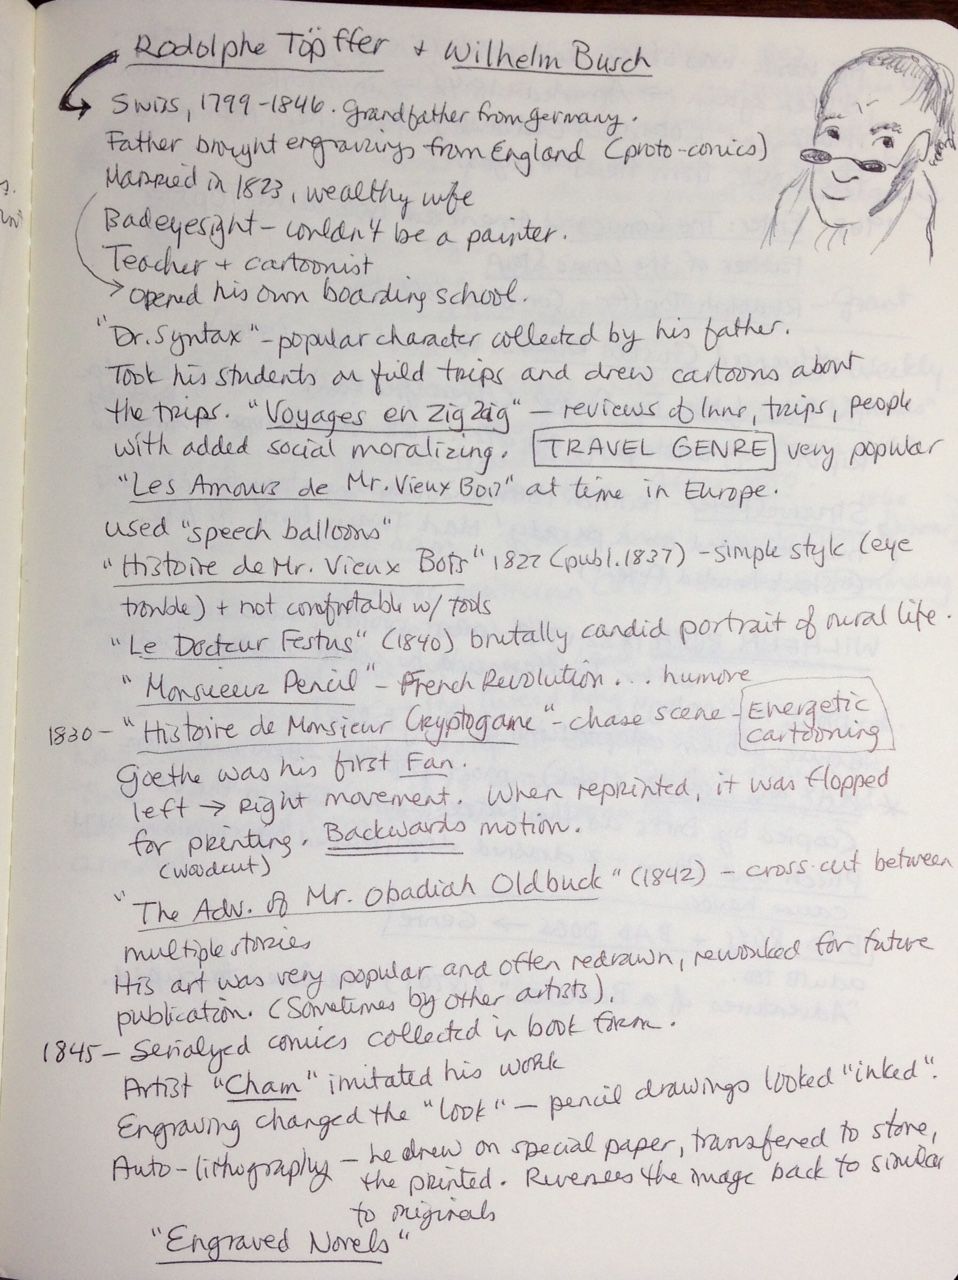 Rodolphe Töpffer + Wilhelm Busch
Swiss, 1799-1846. Grandfather from Germany.
Father brought engravings from England (proto-comics)
Married in 1823, wealthy wife
Bad eyesight - couldn't be a painter.
Teacher + cartoonist
opened his own boarding school.
"Dr. Syntax" - popular character collected by his father.
Took his students on field trips and drew cartoons about
the trips. "Voyages en Zig Zag" - reviews of Inns, trips, people
with added social moralizing. TRAVEL GENRE very popular
"Les Amours de Mr. Vieux Bois" at time in Europe.
used "speech balloons"
"Histoire de Mr. Vieux Bois" 1827 (publ. 1837) - simple style (eye
trouble) + not comfortable w/ tools
"Le Docteur Festus" (1840) brutally candid portrait of rural life.
"Monsieur Pencil" - French Revolution... humore
1830 - "Histoire de Monsieur Cryptogame" - chase scene - Energetic
cartooning
Goethe was his first Fan.
left → Right movement. When reprinted, it was flopped
for printing. Backwards motion.
(woodcut)
"The Adv. of Mr. Obadiah Oldbuck" (1842) - cross-cut between
multiple stories
His art was very popular and often redrawn, reworked for future
publication. (Sometimes by other artists).
1845 - Serialyed comics collected in book form.
Artist "Cham" imitated his work
Engraving changed the "look" - pencil drawings looked "inked".
Auto-lithography - he drew on special paper, transfered to stone,
the printed. Reverses the image back to similar
to originals
"Engraved Novels"